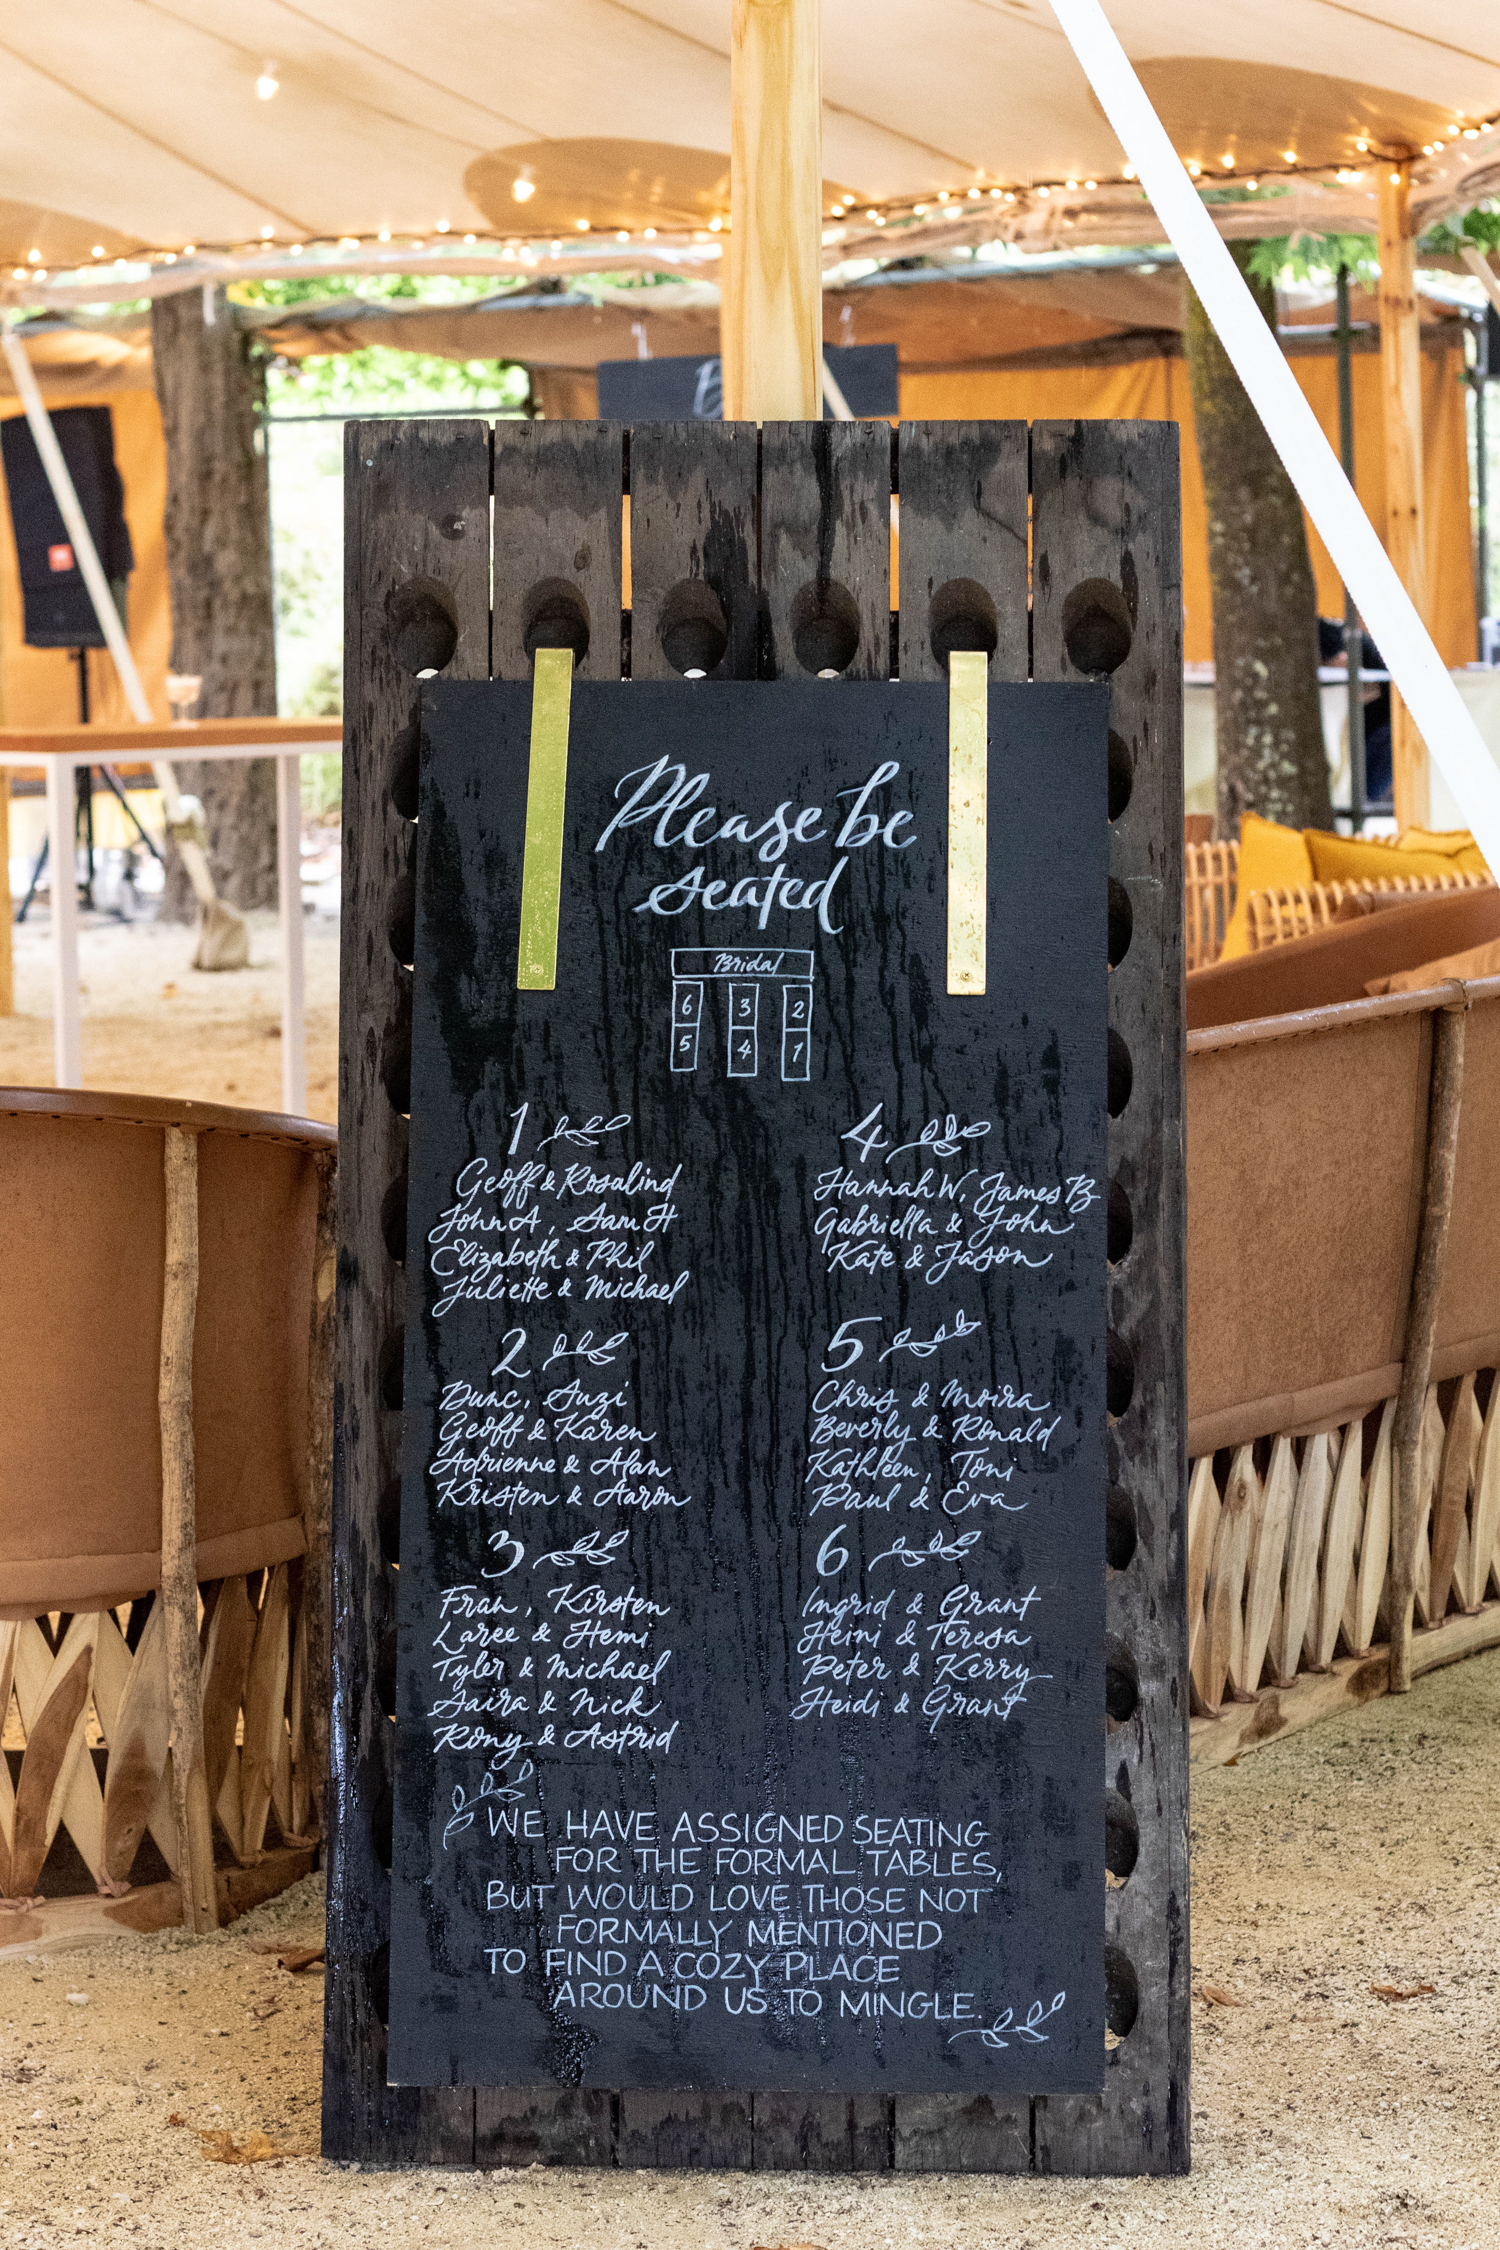 B
Please be
seated
Bridal
6 3 2
5 4 1
1
Geoff & Rosalind
John A, Sam H
Elizabeth & Phil
Juliette & Michael
2
Dunc, Suzi
Geoff & Karen
Adrienne & Alan
Kristen & Aaron
3
Fran, Kirsten
Laree & Hemi
Tyler & Michael
Saira & Nick
Rony & Astrid
4
Hannah W, James B
Gabriella & John
Kate & Jason
5
Chris & Moira
Beverly & Ronald
Kathleen, Toni
Paul & Eva
6
Ingrid & Grant
Heini & Teresa
Peter & Kerry
Heidi & Grant
WE HAVE ASSIGNED SEATING
FOR THE FORMAL TABLES,
BUT WOULD LOVE THOSE NOT
FORMALLY MENTIONED
TO FIND A COZY PLACE
AROUND US TO MINGLE.